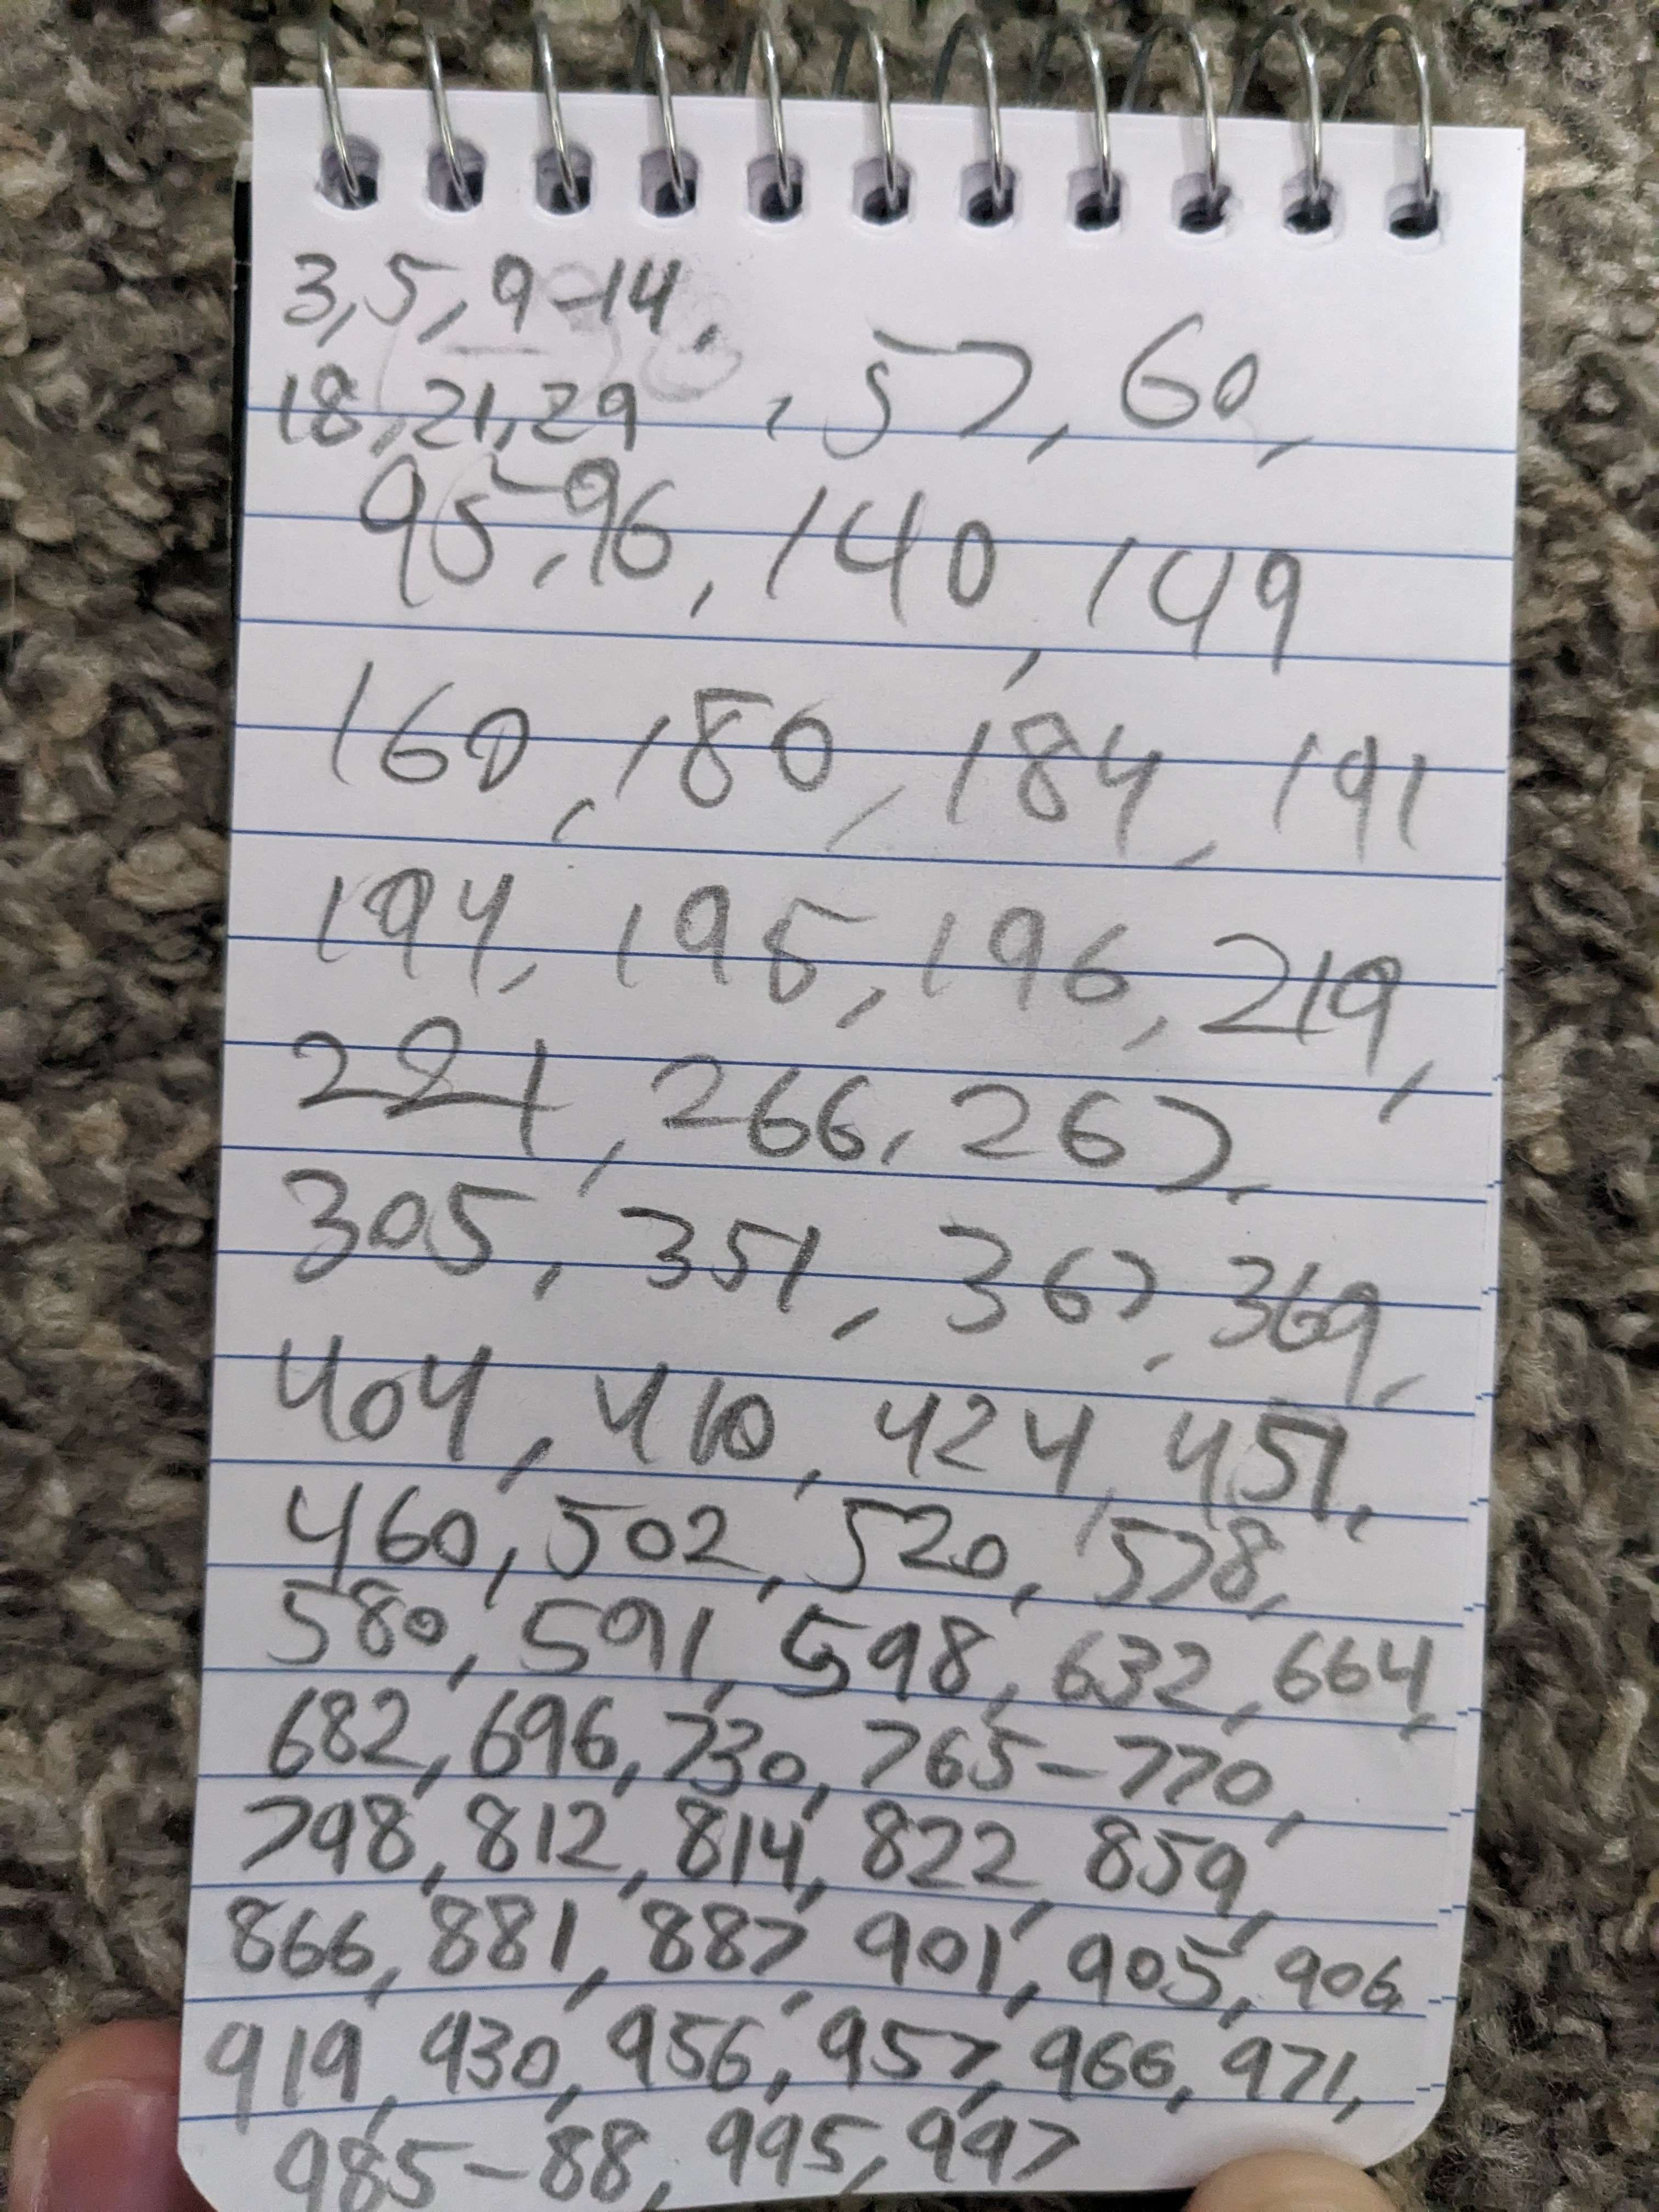 3, 5, 9-14,
18, 21, 29, 57, 60,
95, 96, 140, 149
160, 180, 184, 191
194, 195, 196, 219,
221, 266, 267.
305, 351, 367, 369,
404, 410, 424, 451,
460, 502, 520, 578,
580, 591, 598, 632, 664,
682, 696, 730, 765-770,
798, 812, 814, 822, 859,
866, 881, 887, 901, 905, 906,
919, 930, 956, 957, 966, 971,
985-88, 995, 997